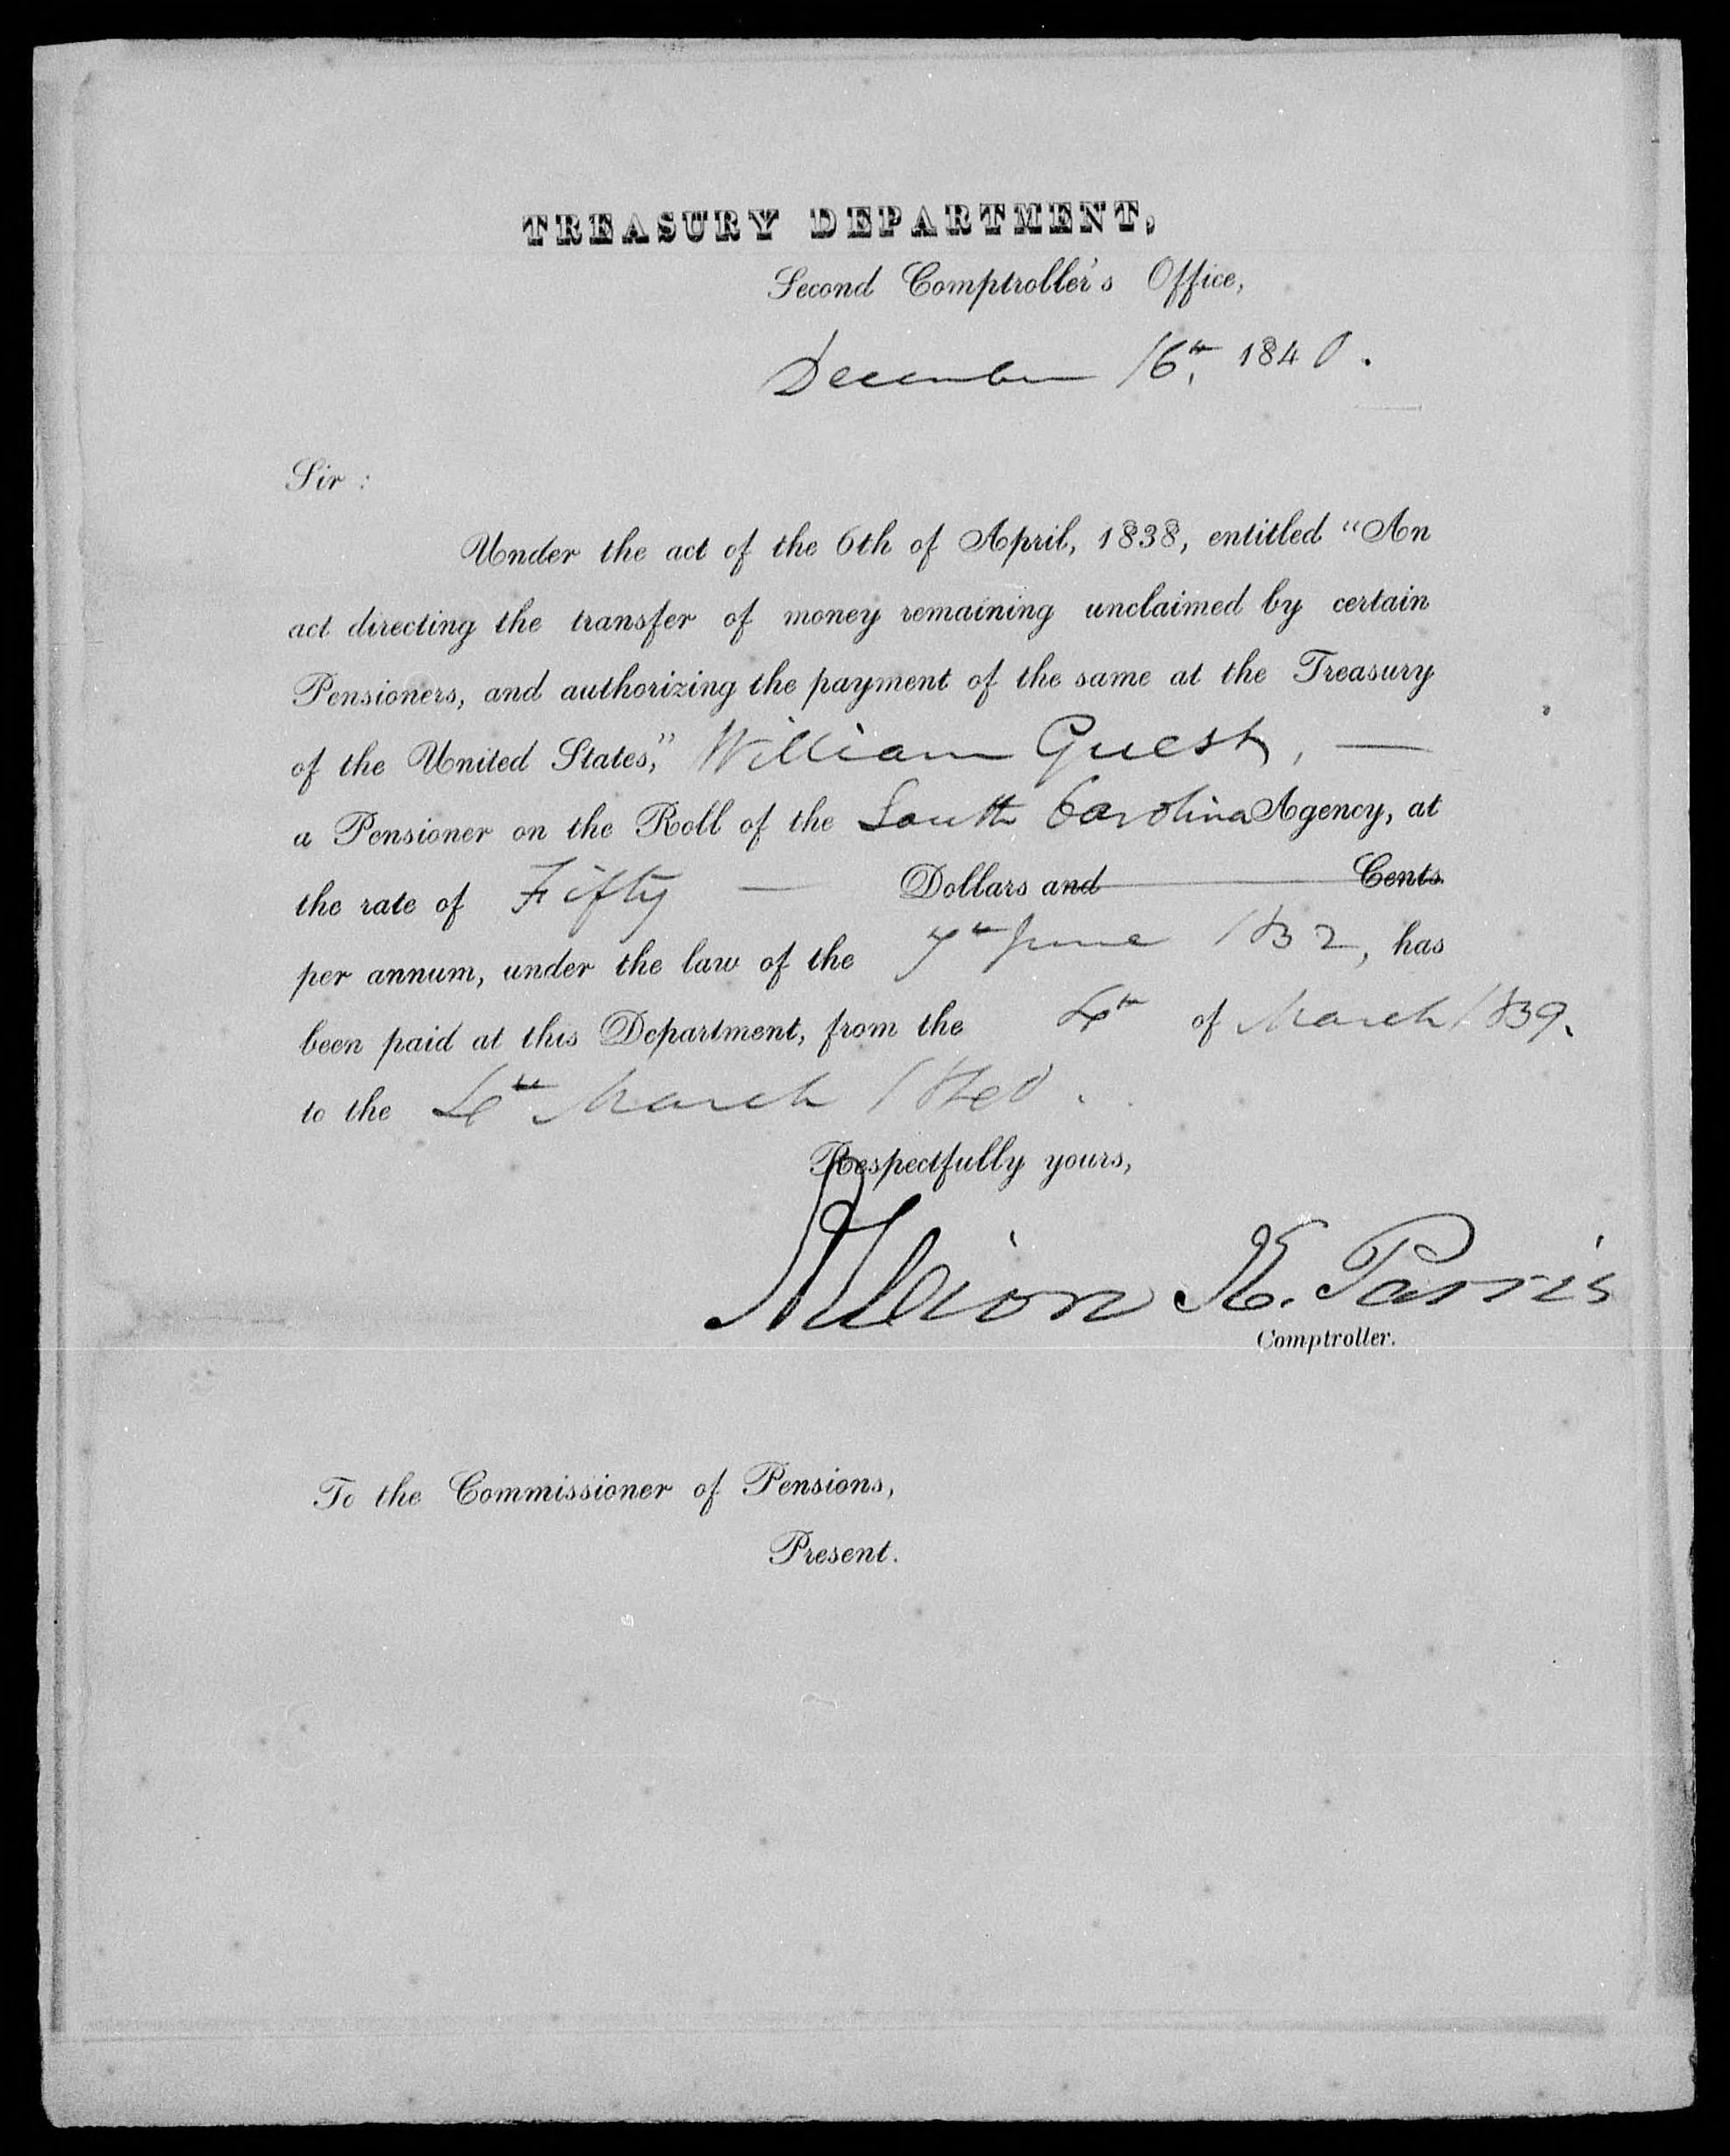 TREASURY DEPARTMENT,
Second Comptroller's Office,
December 16th, 1840.
Sir:
Under the act of the 6th of April, 1838, entitled "An
act directing the transfer of money remaining unclaimed by certain
Pensioners, and authorizing the payment of the same at the Treasury
of the United States," William Guest, —
a Pensioner on the Roll of the South Carolina Agency, at
the rate of Fifty — Dollars and Cents
per annum, under the law of the 7th June 1832, has
been paid at this Department, from the 4th of March 1839.
to the 4th March 1840.
Respectfully yours,
Albion K. Parris
Comptroller.
To the Commissioner of Pensions,
Present.